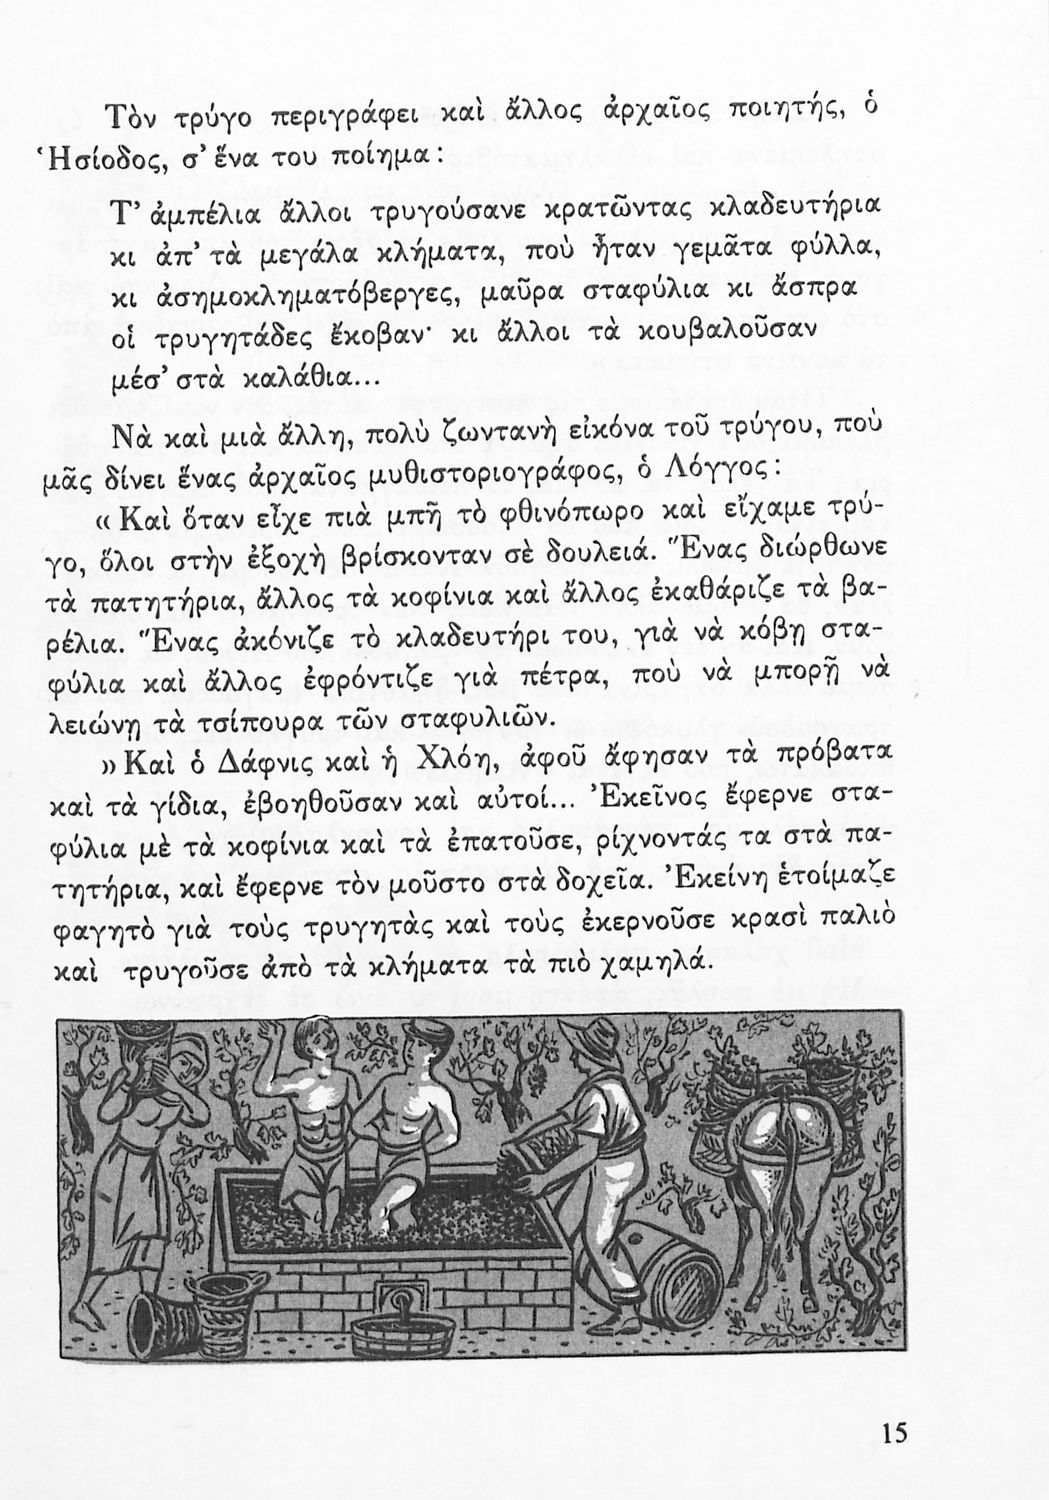 Τὸν τρύγο περιγράφει καὶ ἄλλος ἀρχαῖος ποιητής, ὁ
Ἡσίοδος, σ’ ἕνα του ποίημα:
Τ’ ἀμπέλια ἄλλοι τρυγούσανε κρατῶντας κλαδευτήρια
κι ἀπ’ τὰ μεγάλα κλήματα, ποὺ ἦταν γεμᾶτα φύλλα,
κι ἀσημοκληματόβεργες, μαῦρα σταφύλια κι ἄσπρα
οἱ τρυγητάδες ἔκοβαν· κι ἄλλοι τὰ κουβαλοῦσαν
μέσ’ στὰ καλάθια...
Νὰ καὶ μιὰ ἄλλη, πολὺ ζωντανὴ εἰκόνα τοῦ τρύγου, ποὺ
μᾶς δίνει ἕνας ἀρχαῖος μυθιστοριογράφος, ὁ Λόγγος:
«Καὶ ὅταν εἶχε πιὰ μπῆ τὸ φθινόπωρο καὶ εἴχαμε τρύ-
γο, ὅλοι στὴν ἐξοχὴ βρίσκονταν σὲ δουλειά. Ἕνας διώρθωνε
τὰ πατητήρια, ἄλλος τὰ κοφίνια καὶ ἄλλος ἐκαθάριζε τὰ βα-
ρέλια. Ἕνας ἀκόνιζε τὸ κλαδευτήρι του, γιὰ νὰ κόβῃ στα-
φύλια καὶ ἄλλος ἐφρόντιζε γιὰ πέτρα, ποὺ νὰ μπορῇ νὰ
λειώνῃ τὰ τσίπουρα τῶν σταφυλιῶν.
»Καὶ ὁ Δάφνις καὶ ἡ Χλόη, ἀφοῦ ἄφησαν τὰ πρόβατα
καὶ τὰ γίδια, ἐβοηθοῦσαν καὶ αὐτοί... Ἐκεῖνος ἔφερνε στα-
φύλια μὲ τὰ κοφίνια καὶ τὰ ἐπατοῦσε, ρίχνοντάς τα στὰ πα-
τητήρια, καὶ ἔφερνε τὸν μοῦστο στὰ δοχεῖα. Ἐκείνη ἑτοίμαζε
φαγητὸ γιὰ τοὺς τρυγητὰς καὶ τοὺς ἐκερνοῦσε κρασὶ παλιὸ
καὶ τρυγοῦσε ἀπὸ τὰ κλήματα τὰ πιὸ χαμηλά.
15